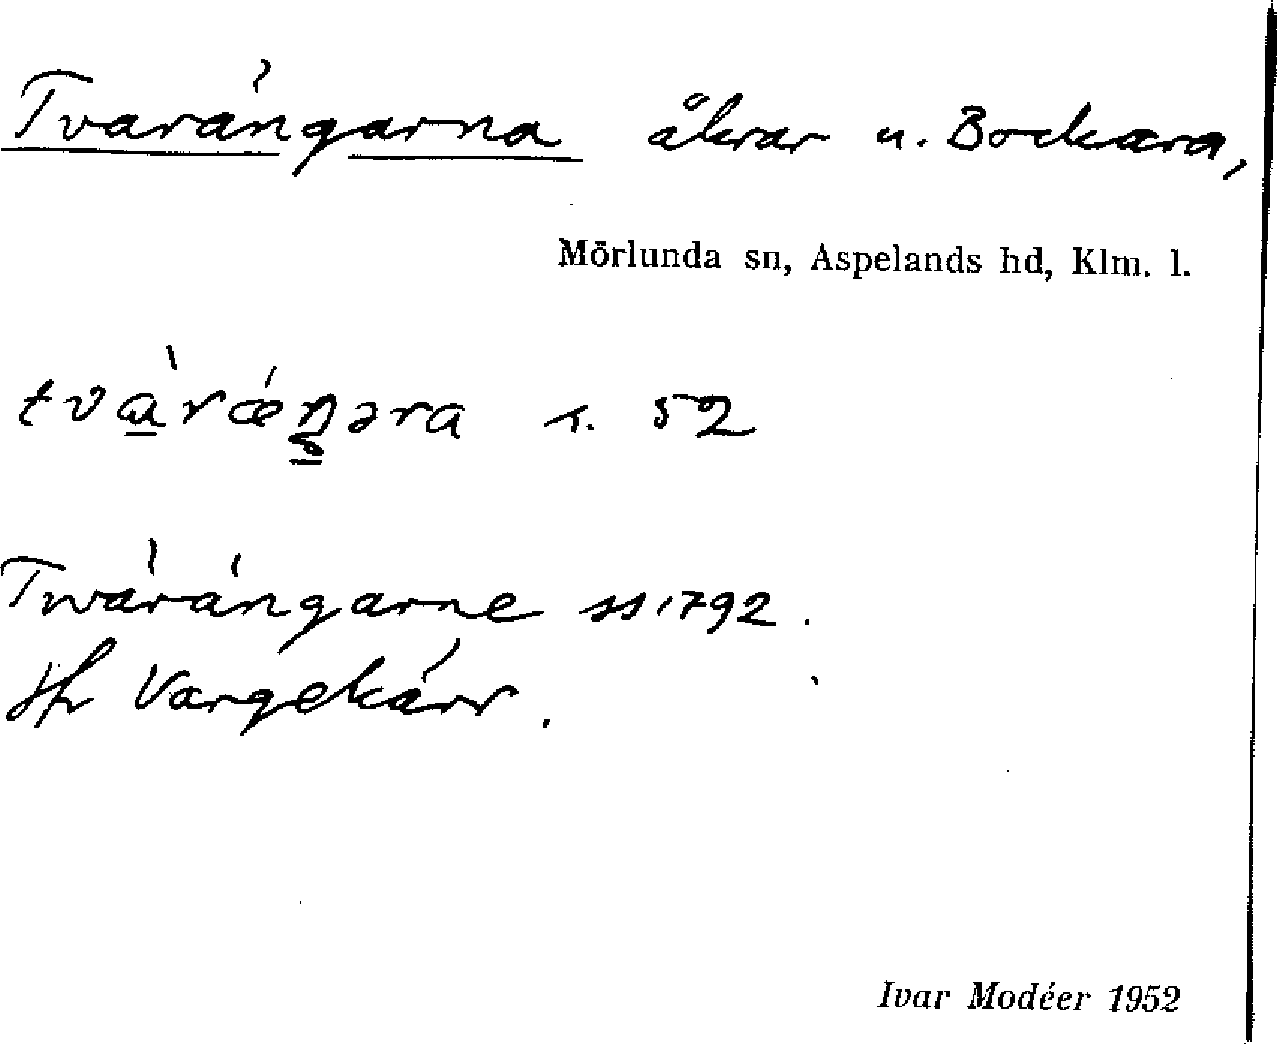 Tvarängarna åkrar u. Bockara,
Mörlunda sn, Aspelands hd, Klm. l.
tvàrǽŋəra s. 52
Twärängarne ss 1792.
Jfr Vargekärr.
Ivar Modéer 1952